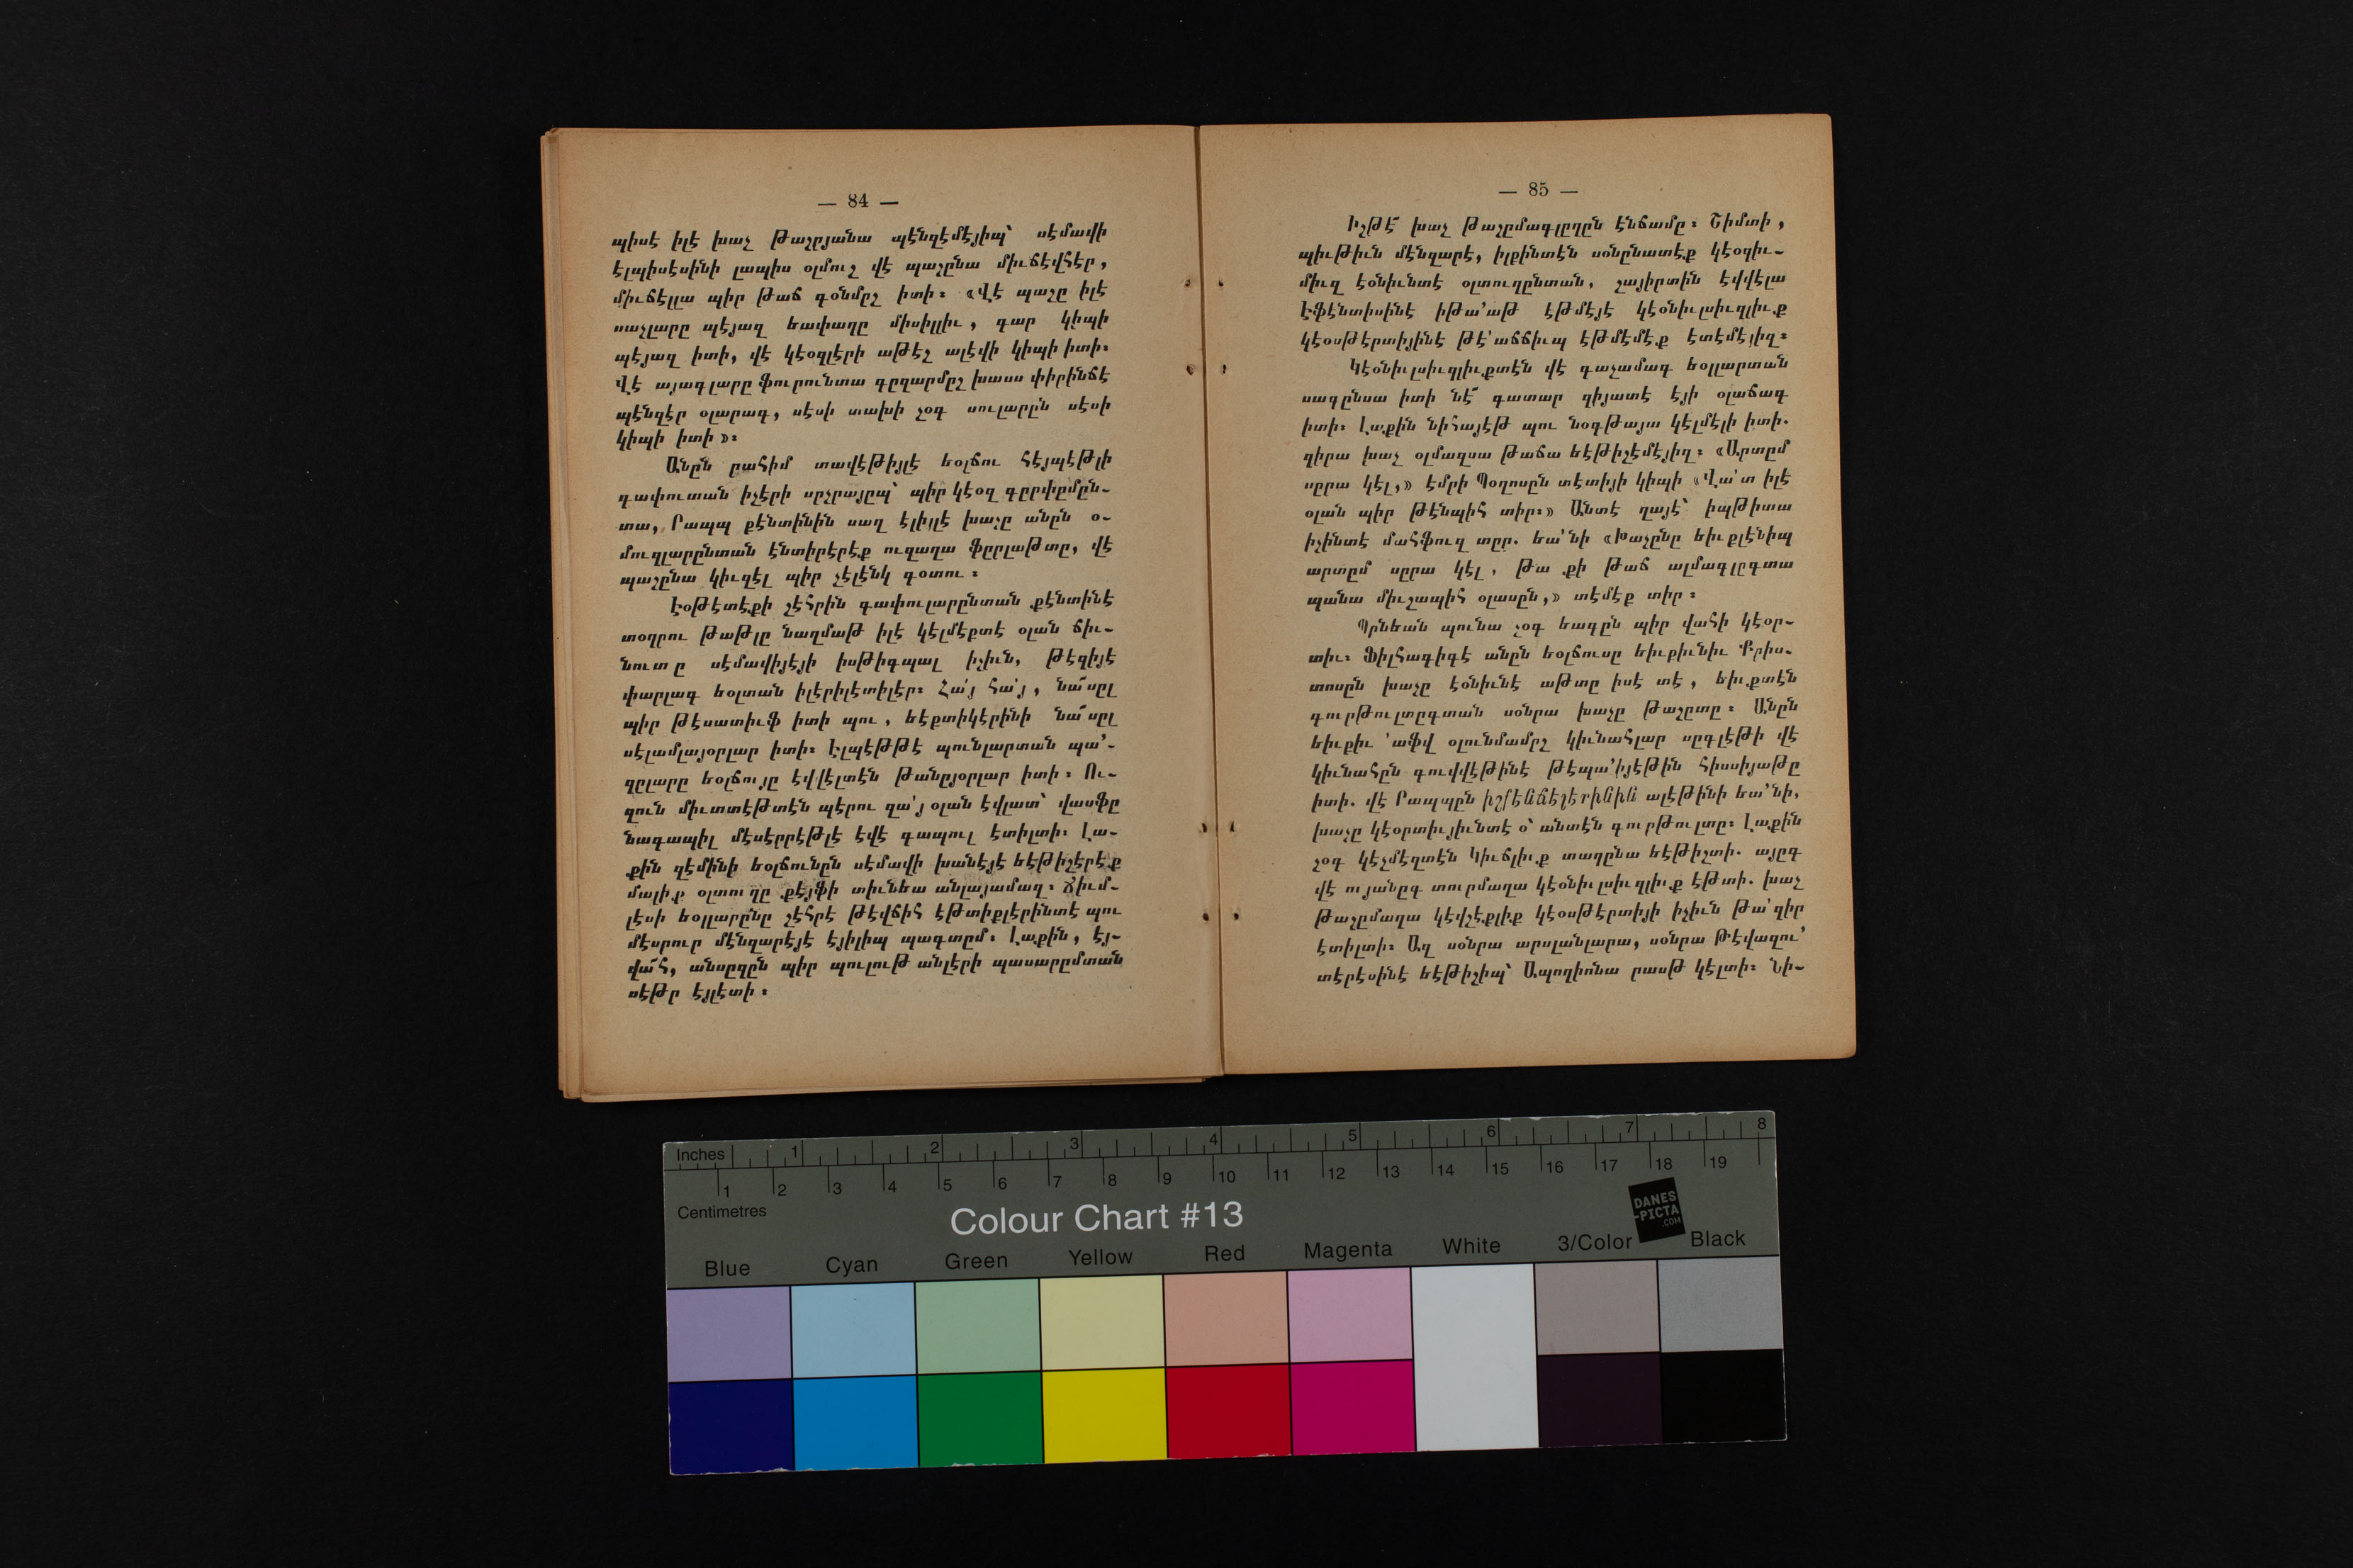 — 84 —
պիսէ իլէ խաչ թաշըյանա պէնզէմէյիպ՝ սէմավի
էլպիսէսինի լապիս օլմուշ վէ պաշընա միւճէվհէր,
միւճէլլա պիր թաճ գօնմըշ իտի։ «Վէ պաշը իլէ
սաչլարը պէյազ եափաղը միսիլլիւ, գար կիպի
պէյազ իտի, վէ կէօզլէրի աթէշ ալէվի կիպի իտի։
Վէ այագլարը ֆուրունտա գըզարմըշ խասս փիրինճէ
պէնզէր օլարագ, սէսի տախի չօգ սուլարըն սէսի
կիպի իտի»։
Անըն րահիմ տավէթիյլէ եօլճու հէյպէթլի
գափուտան իչէրի սըչրայըպ՝ պիր կէօզ գըրփըմըն-
տա, Րապպ քէնտինին սաղ էլիյլէ խաչը անըն օ-
մուզլարընտան էնտիրէրէք ուզաղա ֆըրլաթտը, վէ
պաշընա կիւզէլ պիր չէլէնկ գօտու։
Էօթէտէքի շէհրին գափուլարընտան քէնտինէ
տօղրու թաթլը նաղմաթ իլէ կէլմէքտէ օլան ճիւ-
նուտը սէմավիյէյի իսթիգպալ իչիւն, թէզիյէ
փարլագ եօլտան իլէրիլէտիլէր։ Հա՛յ հա՛յ, նա՜սըլ
պիր թէսատիւֆ իտի պու, եէքտիկէրինի նա՜սըլ
սէլամլայօրլար իտի։ Էլպէթթէ պունլարտան պա՚-
զըլարը եօլճույը էվվէլտէն թանըյօրլար իտի։ Ու-
զուն միւտտէթտէն պէրու զա՛յ օլան էվլատ՝ վասֆը
նագապիլ մէսէրրէթլէ էվէ գապուլ էտիլտի։ Լա-
քին զէմինի եօլճունըն սէմավի խանէյէ եէթիշէրէք
մալիք օլտուղը քէյֆի տիւնեա անլայամազ։ Ճիւմ-
լէսի եօլլարընը շէհրէ թէվճիհ էթտիքլէրինտէ պու
մէսրուր մէնզարէյէ էյիլիպ պագտըմ։ Լաքին, էյ-
վա՜հ, անսըզըն պիր պուլութ անլէրի պասարըմտան
սէթր էյլէտի։
— 85 —
Իշթէ՜ խաչ թաշըմագլըղըն էնճամը։ Շիմտի,
պիւթիւն մէնզարէ, իլքինտէն սօնընատէք կէօզիւ-
միւզ էօնիւնտէ օլտուղընտան, շայիրտին էվվէլա
Էֆէնտիսինէ իթա՚աթ էթմէյէ կէօնիւլսիւզլիւք
կէօսթէրտիյինէ թէ՚աճճիւպ էթմէմէք էտէմէյիզ։
Կէօնիւլսիւզլիւքտէն վէ գաչամագ եօլլարտան
սագընսա իտի նէ՜ գատար զիյատէ էյի օլաճագ
իտի։ Լաքին նիհայէթ պու նօգթայա կէլմէլի իտի.
զիրա խաչ օլմազսա թաճա եէթիշէմէյիզ։ «Արտըմ
սըրա կէլ,» էմրի Պօղոսըն տէտիյի կիպի «Վա՛տ իլէ
օլան պիր թէնպիհ տիր։» Անտէ ղայէ՝ իպթիտա
իչինտէ մահֆուզ տըր. եա՚նի «Խաչընը եիւքլէնիպ
արտըմ սըրա կէլ, թա քի թաճ ալմագլըգտա
պանա միւշապիհ օլասըն,» տէմէք տիր։
Պընեան պունա չօգ եագըն պիր վահի կէօր-
տիւ։ Ֆիլհագիգէ անըն եօլճուսը եիւքիւնիւ Քրիս-
տոսըն խաչը էօնիւնէ աթտը իսէ տէ, եիւքտէն
գուրթուլտըգտան սօնրա խաչը թաշըտը։ Անըն
եիւքիւ ՚աֆվ օլունմամըշ կիւնահլար սըգլէթի վէ
կիւնահըն գուվվէթինէ թէպա՚իյէթին հիսսիյաթը
իտի. վէ Րապպըն իշքենճէլերինին ալէթինի եա՚նի,
խաչը կէօրտիւյիւնտէ օ՝ անտէն գուրթուլտը։ Լաքին
չօգ կէչմէզտէն Կիւճլիւք տաղընա եէթիշտի. այըգ
վէ ույանըգ տուրմաղա կէօնիւլսիւզլիւք էթտի. խաչ
թաշըմաղա կէվշէքլիք կէօսթէրտիյի իչիւն թա՚զիր
էտիլտի։ Ազ սօնրա արսլանլարա, սօնրա թէվազու՚
տէրէսինէ եէթիշիպ՝ Ապողիոնա րասթ կէլտի։ Նի-
Inches 1 2 3 4 5 6 7 8
1 2 3 4 5 6 7 8 9 10 11 12 13 14 15 16 17 18 19
Centimetres
Colour Chart #13
DANES
-PICTA
.COM
Blue Cyan Green Yellow Red Magenta White 3/Color Black